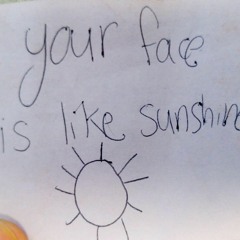 your face
is like sunshine